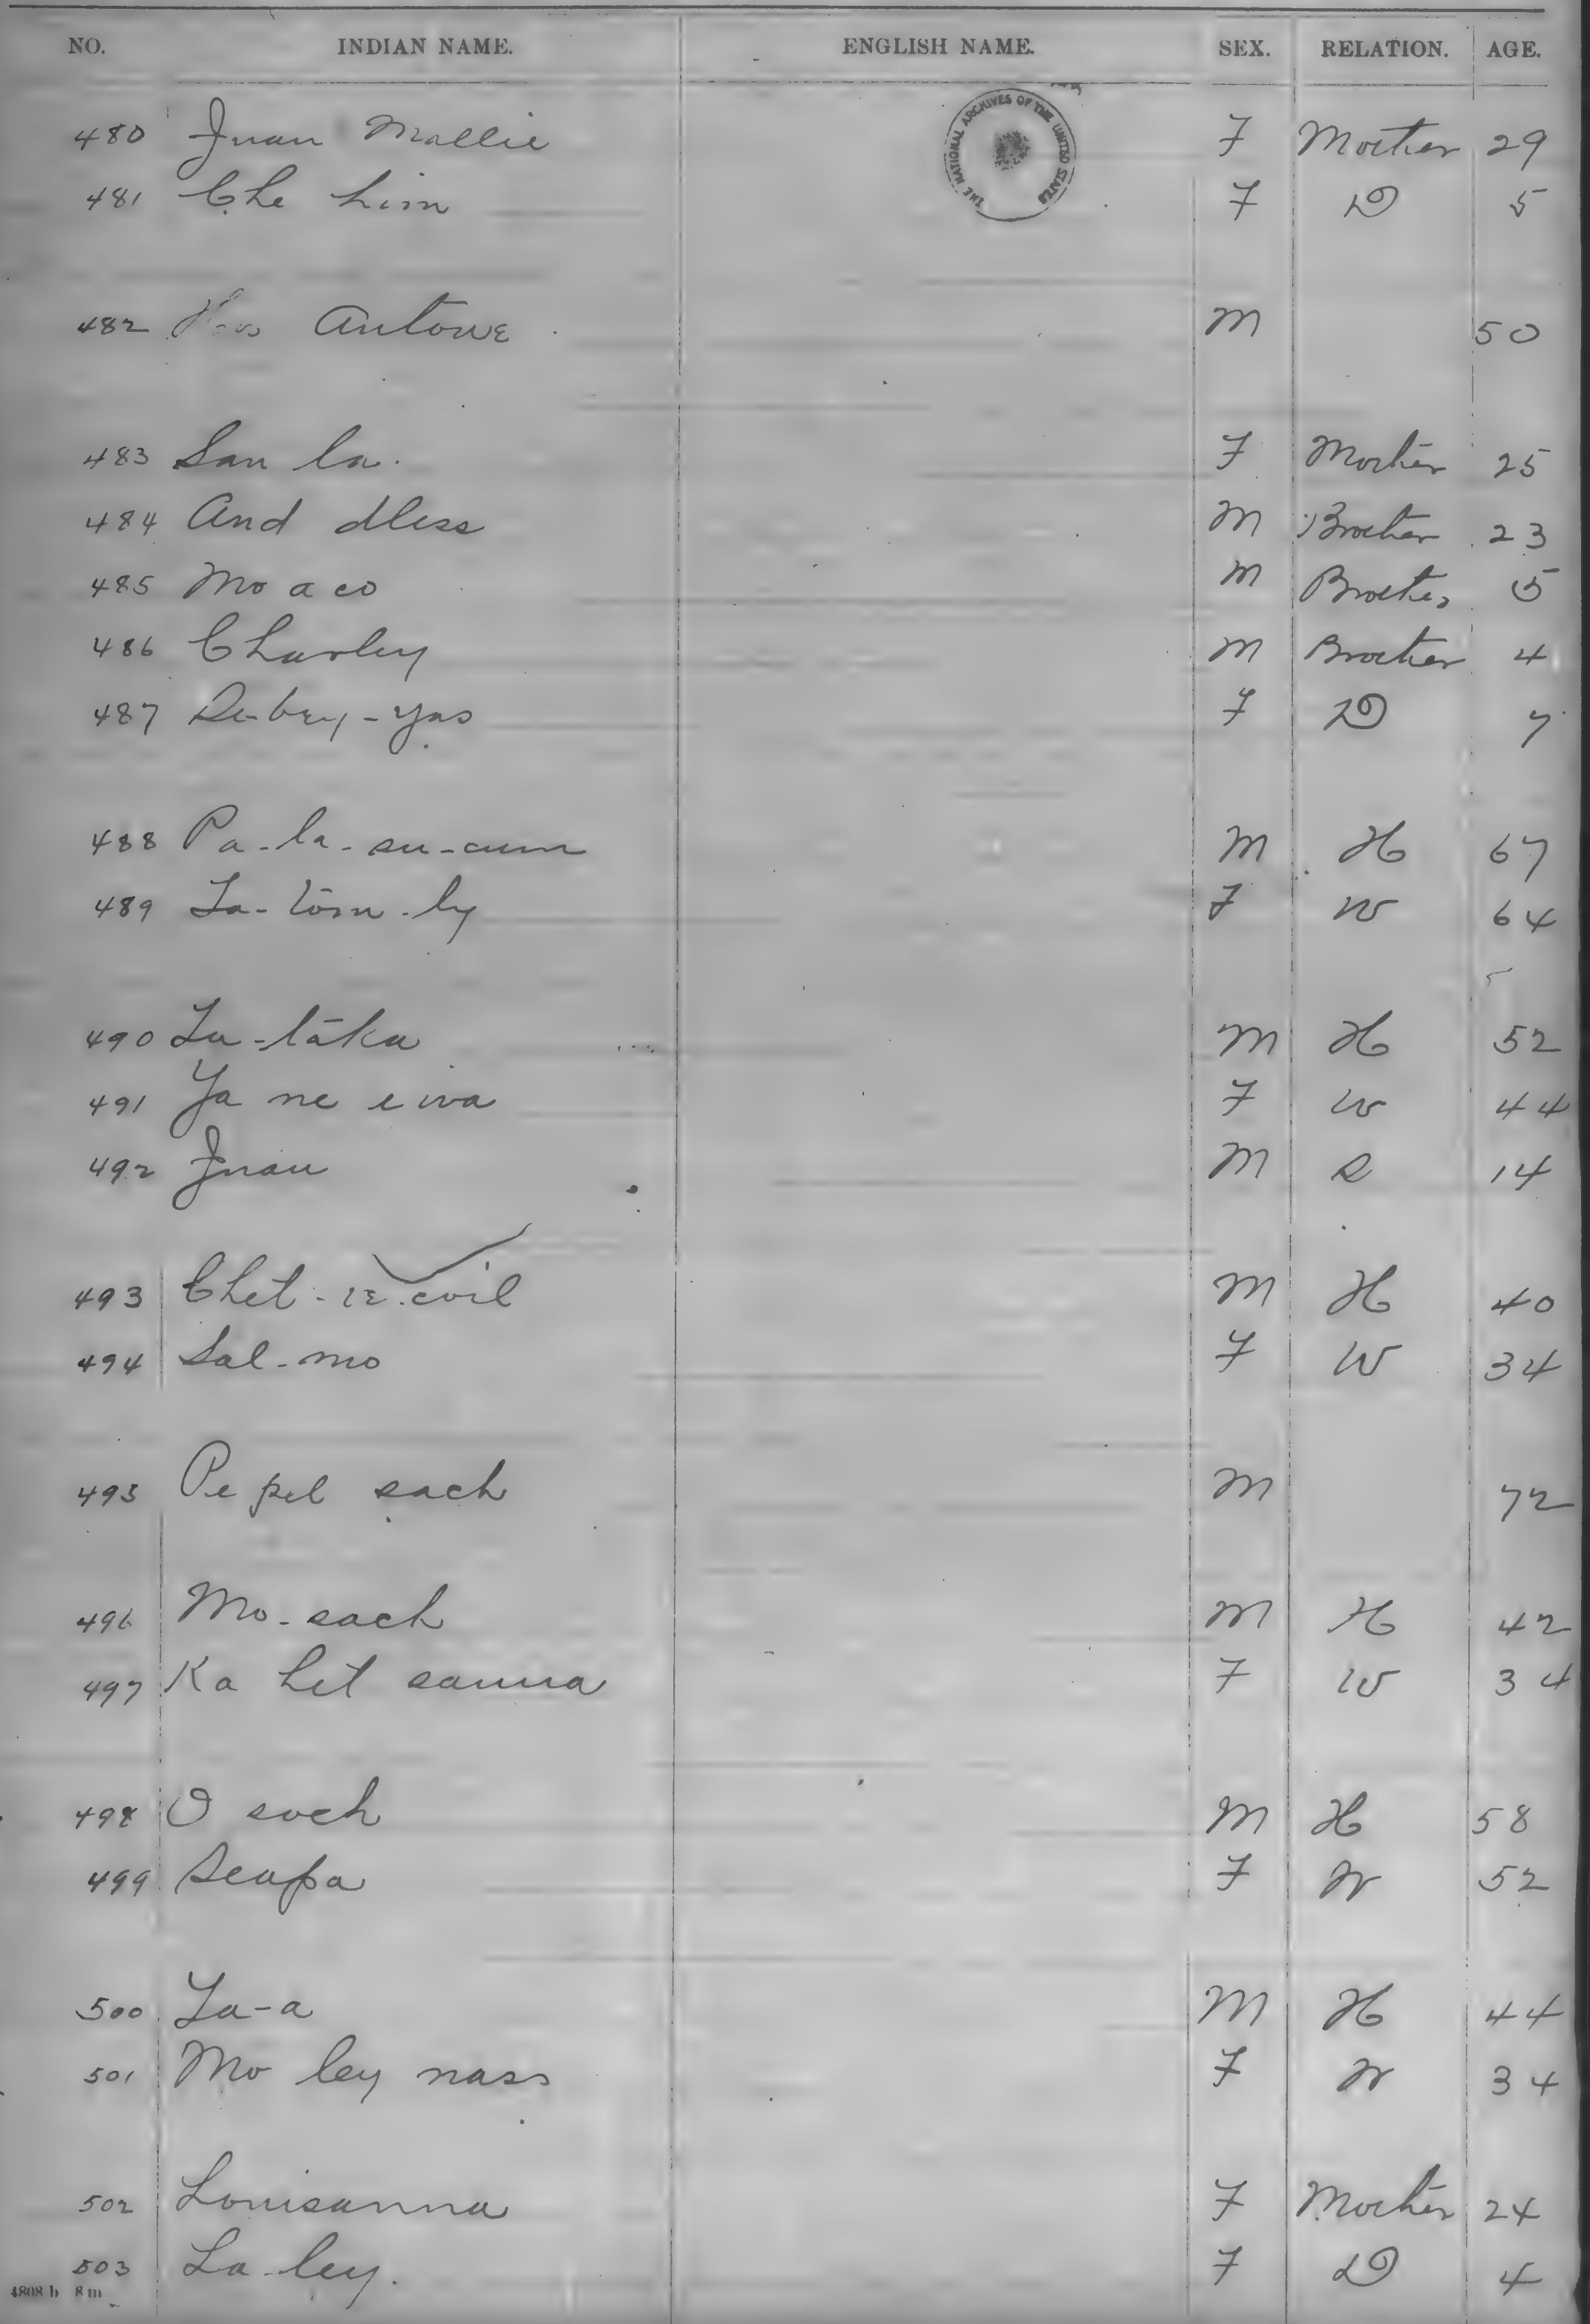 NO. INDIAN NAME. ENGLISH NAME. SEX. RELATION. AGE.
THE NATIONAL ARCHIVES OF THE UNITED STATES
480 Juan Mollie F Mother 29
481 Che him F D 5
482 Antone M 50
483 San la. F Mother 25
484 And dless M Brother 23
485 Mo a co M Brother 5
486 Charley M Brother 4
487 De-bey-yas F D 7
488 Pa-la-su-cum M H 67
489 La-tom-ly F W 64
490 La-lāka M H 52
491 Ya ne e wa F W 44
492 Juan M S 14
493 Chet - le. coil M H 40
494 Sal-mo F W 34
495 Pe pel sach M 72
496 Mo-sach M H 42
497 Ka het sanna F W 34
498 O soch M H 58
499 Seapa F W 52
500 La-a M H 44
501 Mo ley nass F W 34
502 Louisanna F Mother 24
503 La-ley. F D 4
4808 b 8 m